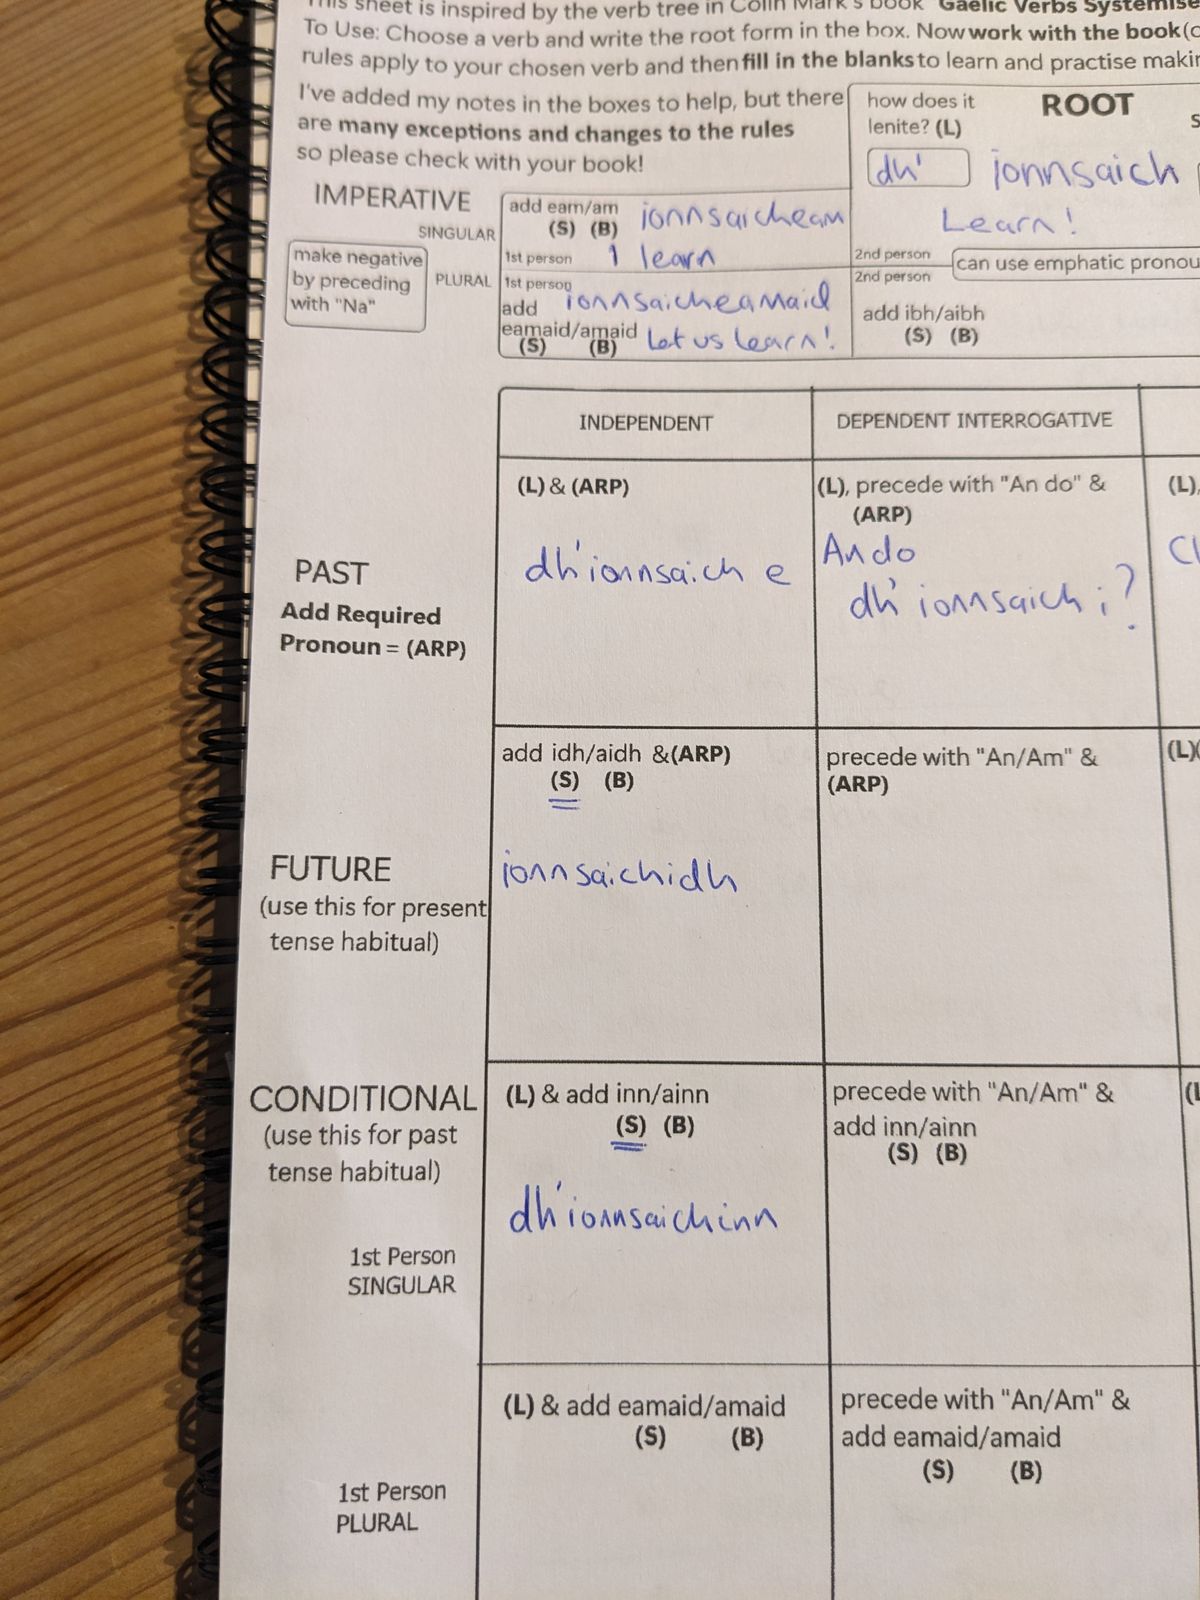 This sheet is inspired by the verb tree in Colin Mark's book "Gaelic Verbs Systemise
To Use: Choose a verb and write the root form in the box. Now work with the book
rules apply to your chosen verb and then fill in the blanks to learn and practise makin
I've added my notes in the boxes to help, but there
are many exceptions and changes to the rules
so please check with your book!
how does it
lenite? (L)
ROOT
dh'
ionnsaich
Learn!
IMPERATIVE
SINGULAR
add eam/am
(S) (B)
ionnsaicheam
1st person
I learn
2nd person
make negative
by preceding
with "Na"
PLURAL
1st person
ionnsaicheamaid
add
eamaid/amaid
(S) (B)
Let us learn!
2nd person
can use emphatic pronou
add ibh/aibh
(S) (B)
INDEPENDENT
DEPENDENT INTERROGATIVE
PAST
Add Required
Pronoun = (ARP)
(L) & (ARP)
dh'ionnsaich e
(L), precede with "An do" &
(ARP)
An do
dh'ionnsaich i?
(L),
FUTURE
(use this for present
tense habitual)
add idh/aidh &(ARP)
(S) (B)
ionnsaichidh
precede with "An/Am" &
(ARP)
(L)
CONDITIONAL
(use this for past
tense habitual)
1st Person
SINGULAR
(L) & add inn/ainn
(S) (B)
dh'ionnsaichinn
precede with "An/Am" &
add inn/ainn
(S) (B)
1st Person
PLURAL
(L) & add eamaid/amaid
(S) (B)
precede with "An/Am" &
add eamaid/amaid
(S) (B)